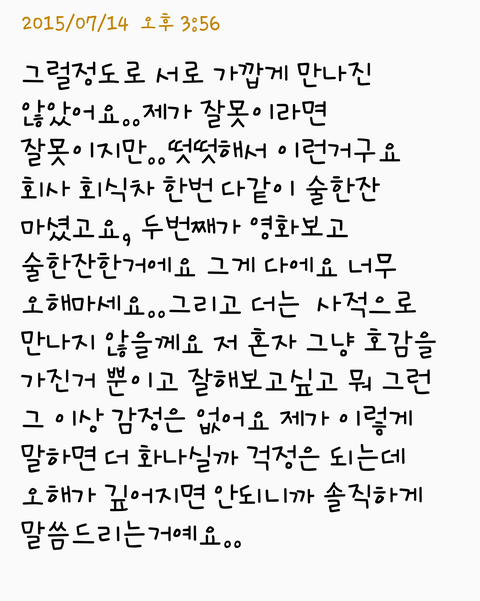 2015/07/14 오후 3:56
그럴정도로 서로 가깝게 만나진
않았어요..제가 잘못이라면
잘못이지만..떳떳해서 이런거구요
회사 회식차 한번 다같이 술한잔
마셨고요, 두번째가 영화보고
술한잔한거에요 그게 다에요 너무
오해마세요..그리고 더는 사적으로
만나지 않을께요 저 혼자 그냥 호감을
가진거 뿐이고 잘해보고싶고 뭐 그런
그 이상 감정은 없어요 제가 이렇게
말하면 더 화나실까 걱정은 되는데
오해가 깊어지면 안되니까 솔직하게
말씀드리는거예요..